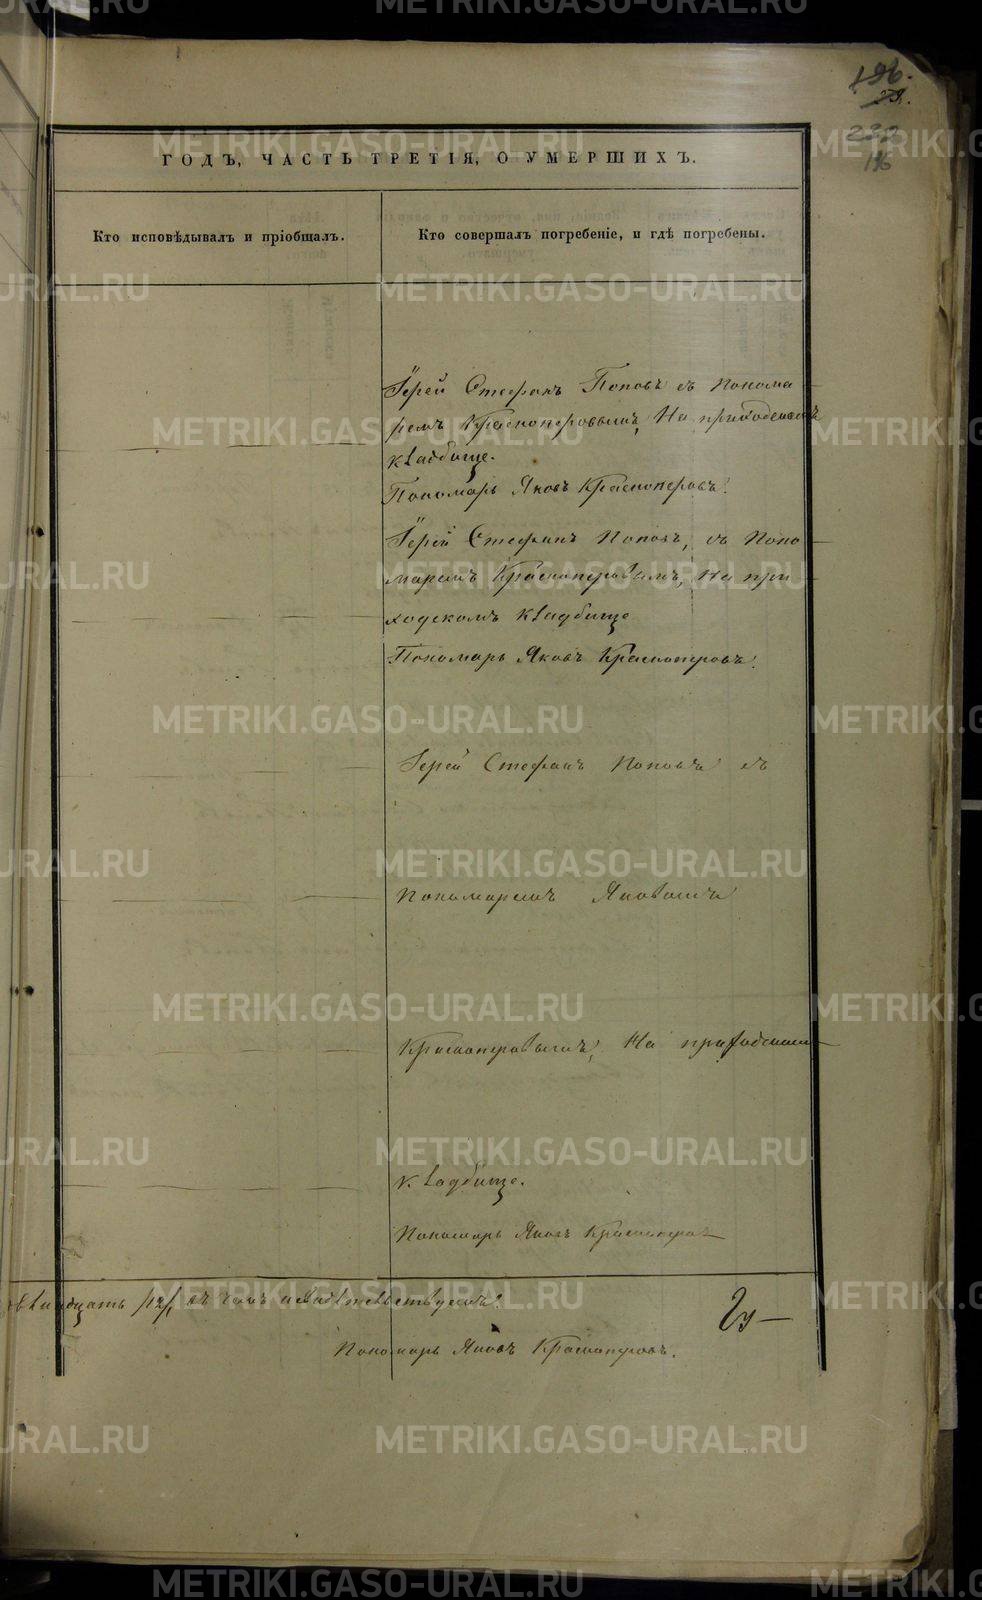 196.
29.
232
196
ГОДЪ, ЧАСТЬ ТРЕТІЯ, О УМЕРШИХЪ.
Кто исповѣдывалъ и пріобщалъ.
Кто совершалъ погребеніе, и гдѣ погребены.
Іерей Стефанъ Поповъ съ Понома
ремъ Красноперовымъ, На приходскомъ
кладбище.
Пономарь Яковъ Красноперовъ.
Іерей Стефанъ Поповъ, съ Поно
маремъ Красноперовымъ, На при
ходскомъ кладбище
Пономарь Яковъ Красноперовъ.
Іерей Стефанъ Поповъ съ
Пономаремъ Яковомъ
Красноперовымъ, На приходском
кладбище.
Пономарь Яковъ Красноперовъ
двенадцать /12/, въ чемъ и свидѣтельствуемъ.
Пономарь Яковъ Красноперовъ.
METRIKI.GASO-URAL.RU